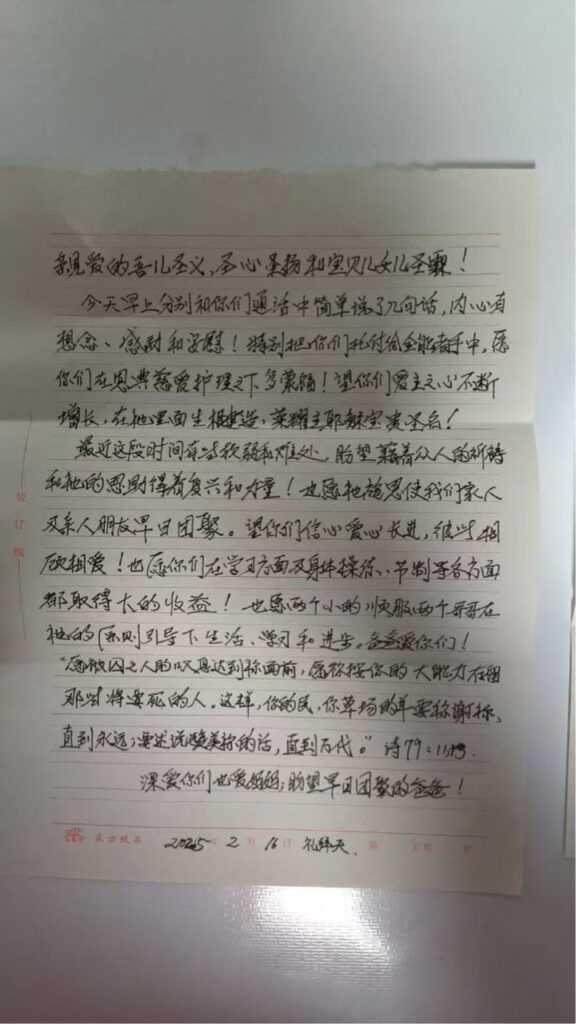 亲爱的吾儿圣义,圣心圣扬和宝贝儿女儿圣霖!
今天早上分别和你们通话中简单说了几句话,内心有
想念、感动和安慰!特别把你们托付给全能者手中,愿
你们在恩典慈爱护理之下多蒙福!望你们爱主之心不断
增长,在祂里面生根建造,荣耀主耶稣宝贵圣名!
最近这段时间有些软弱和难处,盼望藉着众人的祈祷
和祂的恩助得着复兴和力量!也愿祂施恩使我们家人
及亲人朋友早日团聚。望你们信心爱心长进,彼此相
顾相爱!也愿你们在学习方面及身体操练、节制等各方面
都取得长的收益!也愿两个小的顺服两个哥哥在
祂的原则引导下生活、学习和进步。爸爸爱你们!
“愿被囚之人的叹息达到你面前,愿你按你的大能力存留
那些将要死的人。这样,你的民,你草场的羊要称谢你,
直到永远;要述说赞美你的话,直到万代。”诗79:11,13
深爱你们也爱妈妈;盼望早日团聚的爸爸!
东方纸品 2025年2月16日 礼拜天. 第 页共 页
装订线